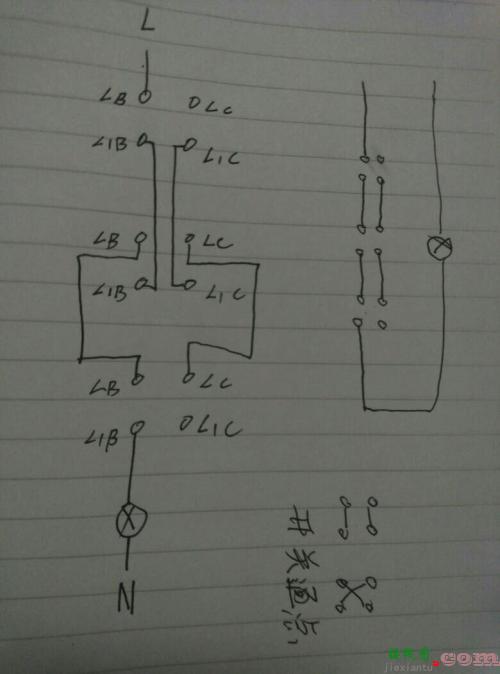 L
LB LC
L1B L1C
LB LC
L1B L1C
LB LC
L1B L1C
N
开关通点
jiexiantu
.com